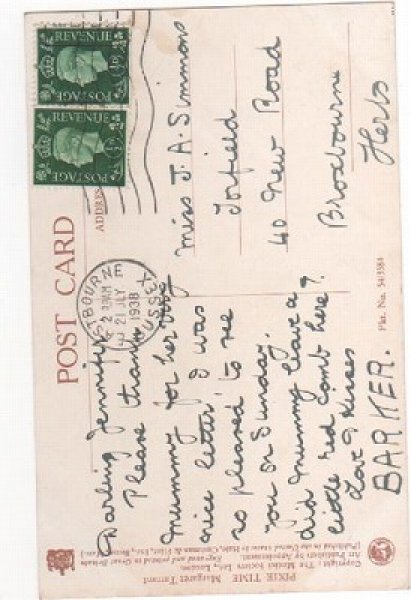 POST CARD
ADDRESS
REVENUE
POSTAGE
½D
REVENUE
POSTAGE
½D
EASTBOURNE
2 30AM
21 JLY
1938
SUSSEX
Darling Jennifer
Please thank
Mummy for her very
nice letter. I was
so pleased to see
you on Sunday.
Did Mummy leave a
little red comb here?
Love & kisses
BARKER.
Miss J. A. Simmons
Torfield
40 New Road
Broxbourne
Herts
Plat. No. 54/3584
PIXIE TIME Margaret Tarrant
Copyright: The Medici Society Ltd., London.
Art Publishers by Appointment. Engraved and printed in Great Britain